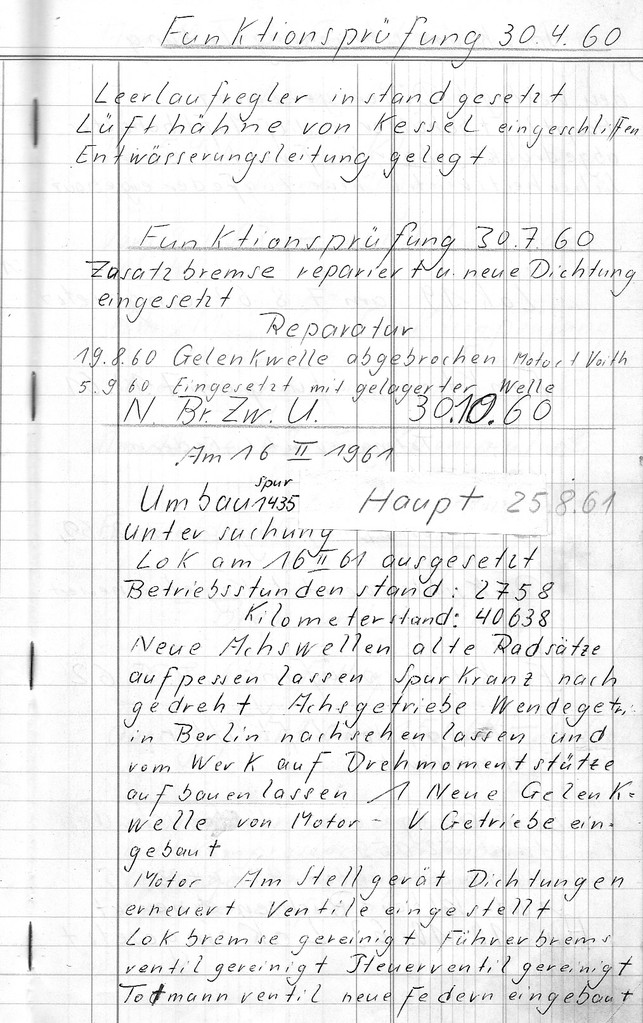 Funktionsprüfung 30.4.60
Leerlaufregler instandgesetzt
Lüfthähne von Kessel eingeschliffen
Entwässerungsleitung gelegt
Funktionsprüfung 30.7.60
Zusatzbremse repariert u. neue Dichtung
eingesetzt
Reparatur
19.8.60 Gelenkwelle abgebrochen Motor t Voith
5.9 60 Eingesetzt mit gelagerter Welle
N. Br. Zw. U. 30.10.60
Am 16 II 1961
Umbau Spur 1435 Haupt 25.8.61
untersuchung
Lok am 16 II 61 ausgesetzt
Betriebsstundenstand: 2758
Kilometerstand: 40638
Neue Achswellen alte Radsätze
aufpessen lassen Spurkranz nach
gedreht Achsgetriebe Wendegetr.
in Berlin nachsehen lassen und
vom Werk auf Drehmomentstütze
aufbauen lassen 1 Neue Gelenk=
welle von Motor - V. Getriebe ein-
gebaut
Motor Am Stellgerät Dichtungen
erneuert Ventile eingestellt
Lokbremse gereinigt Führerbrems
ventil gereinigt Steuerventil gereinigt
Totmannventil neue Federn eingebaut